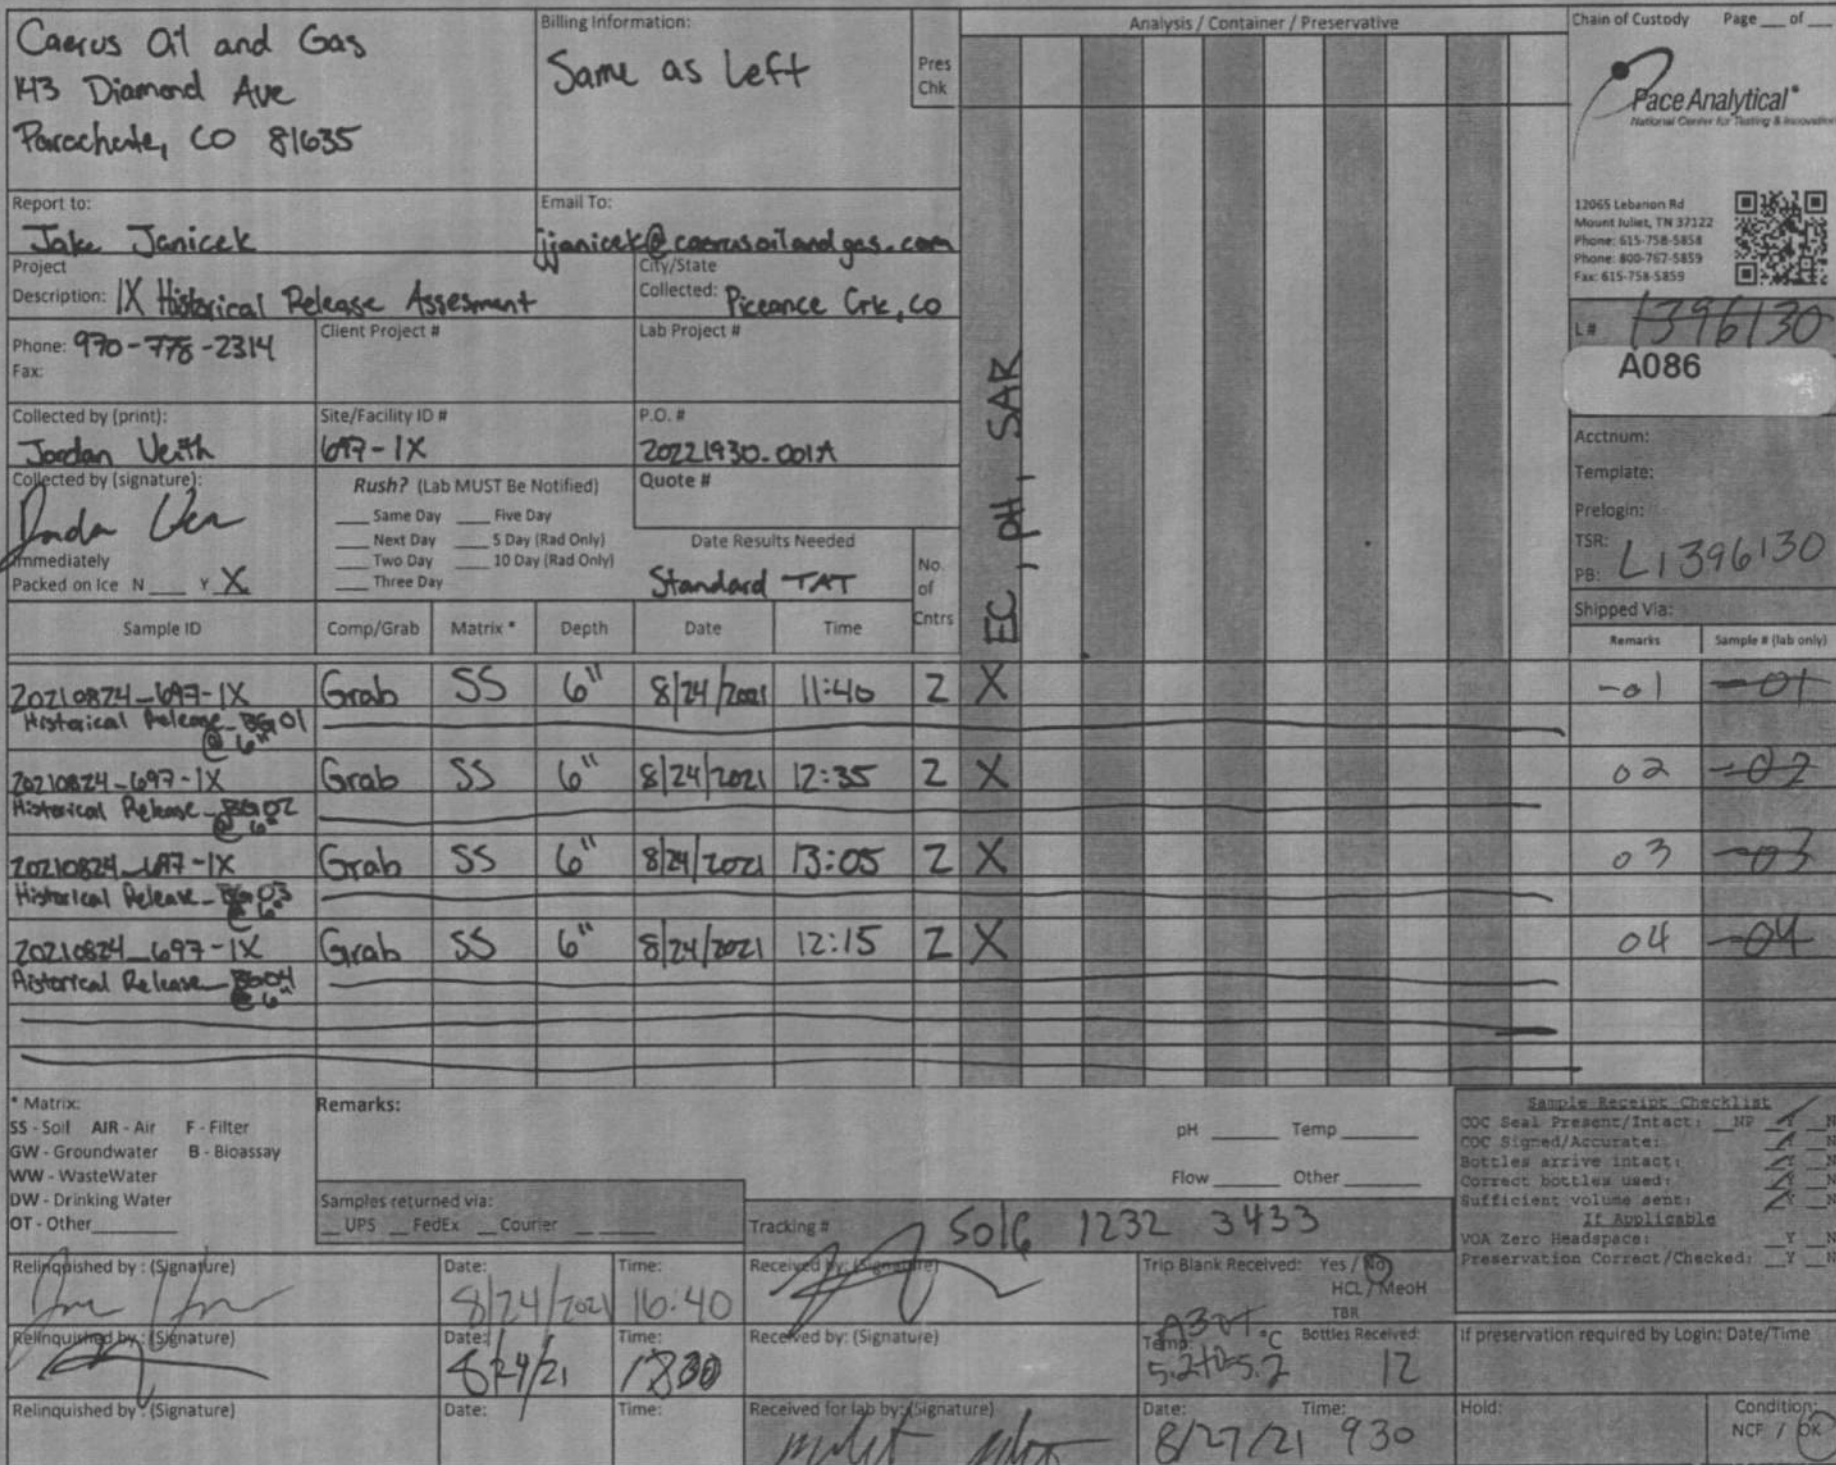 Caerus Oil and Gas
143 Diamond Ave
Parachute, CO 81635
Billing Information:
Same as Left
Pres
Chk
Analysis / Container / Preservative
Chain of Custody Page ___ of ___
Pace Analytical®
National Center for Testing & Innovation
12065 Lebanon Rd
Mount Juliet, TN 37122
Phone: 615-758-5858
Phone: 800-767-5859
Fax: 615-758-5859
Report to:
Jake Janicek
Email To:
jjanicek@caerusoilandgas.com
Project
Description: IX Historical Release Assesment
City/State
Collected: Piceance Crk, CO
Phone: 970-778-2314
Fax:
Client Project #
Lab Project #
L # 1396130
A086
Collected by (print):
Jordan Veith
Site/Facility ID #
697-IX
P.O. #
20221930.001A
Collected by (signature):
Immediately
Packed on Ice N ___ Y X
Rush? (Lab MUST Be Notified)
___ Same Day ___ Five Day
___ Next Day ___ 5 Day (Rad Only)
___ Two Day ___ 10 Day (Rad Only)
___ Three Day
Quote #
Date Results Needed
Standard TAT
No.
of
Cntrs
EC, pH, SAR
Acctnum:
Template:
Prelogin:
TSR:
PB: L1396130
Shipped Via:
Sample ID Comp/Grab Matrix * Depth Date Time Remarks Sample # (lab only)
20210824_697-IX Grab SS 6" 8/24/2021 11:40 2 X -01 -01
Historical Release_BG01
@ 6"
20210824_697-IX Grab SS 6" 8/24/2021 12:35 2 X 02 -02
Historical Release_BG02
@ 6"
20210824_697-IX Grab SS 6" 8/24/2021 13:05 2 X 03 -03
Historical Release_BG03
@ 6"
20210824_697-IX Grab SS 6" 8/24/2021 12:15 2 X 04 -04
Historical Release_BG04
@ 6"
* Matrix:
SS - Soil AIR - Air F - Filter
GW - Groundwater B - Bioassay
WW - WasteWater
DW - Drinking Water
OT - Other
Remarks:
pH ___ Temp ___
Flow ___ Other ___
Samples returned via:
__ UPS __ FedEx __ Courier
Tracking # 5016 1232 3433
Sample Receipt Checklist
COC Seal Present/Intact: __NP __Y __N
COC Signed/Accurate: __Y __N
Bottles arrive intact: __Y __N
Correct bottles used: __Y __N
Sufficient volume sent: __Y __N
If Applicable
VOA Zero Headspace: __Y __N
Preservation Correct/Checked: __Y __N
Relinquished by : (Signature)
Date:
8/24/2021
Time:
16:40
Received by: (Signature)
Trip Blank Received: Yes / No
HCL / MeoH
TBR
Relinquished by : (Signature)
Date:
8/24/21
Time:
1800
Received by: (Signature)
Temp: °C
5.2+0=5.2
Bottles Received:
12
If preservation required by Login: Date/Time
Relinquished by : (Signature)
Date:
Time:
Received for lab by: (Signature)
Date:
8/27/21
Time:
930
Hold:
Condition:
NCF / OK